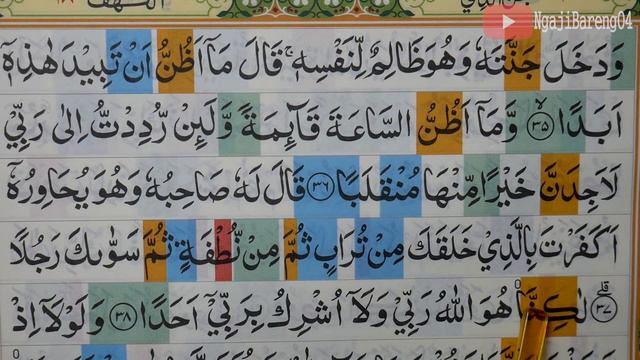 NgajiBareng04
وَدَخَلَ جَنَّتَهٗ وَهُوَ ظَالِمٌ لِّنَفْسِهٖۚ قَالَ مَآ اَظُنُّ اَنْ تَبِيْدَ هٰذِهٖٓ
اَبَدًا ۙ٣٥ وَّمَآ اَظُنُّ السَّاعَةَ قَاۤىِٕمَةً وَّلَىِٕنْ رُّدِدْتُّ اِلٰى رَبِّيْ
لَاَجِدَنَّ خَيْرًا مِّنْهَا مُنْقَلَبًا ٣٦ قَالَ لَهٗ صَاحِبُهٗ وَهُوَ يُحَاوِرُهٗٓ
اَكَفَرْتَ بِالَّذِيْ خَلَقَكَ مِنْ تُرَابٍ ثُمَّ مِنْ نُّطْفَةٍ ثُمَّ سَوّٰىكَ رَجُلًا
ۗ٣٧ لٰكِنَّا۠ هُوَ اللّٰهُ رَبِّيْ وَلَآ اُشْرِكُ بِرَبِّيْٓ اَحَدًا ٣٨ وَلَوْلَآ اِذْ